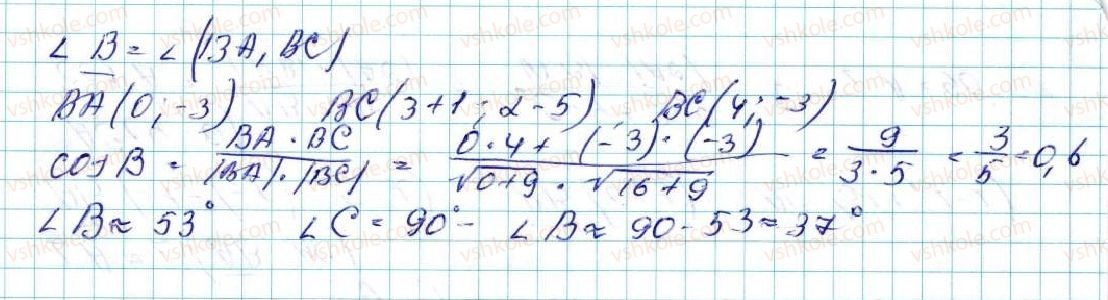 ∠ B = ∠ (BA, BC)
BA (0; -3) BC (3+1; 2-5) BC (4; -3)
cos B = BA · BC / |BA| · |BC| = 0·4 + (-3) · (-3) / √0+9 · √16+9 = 9 / 3·5 = 3/5 = 0,6
∠ B ≈ 53° ∠ C = 90° - ∠ B ≈ 90 - 53 ≈ 37°